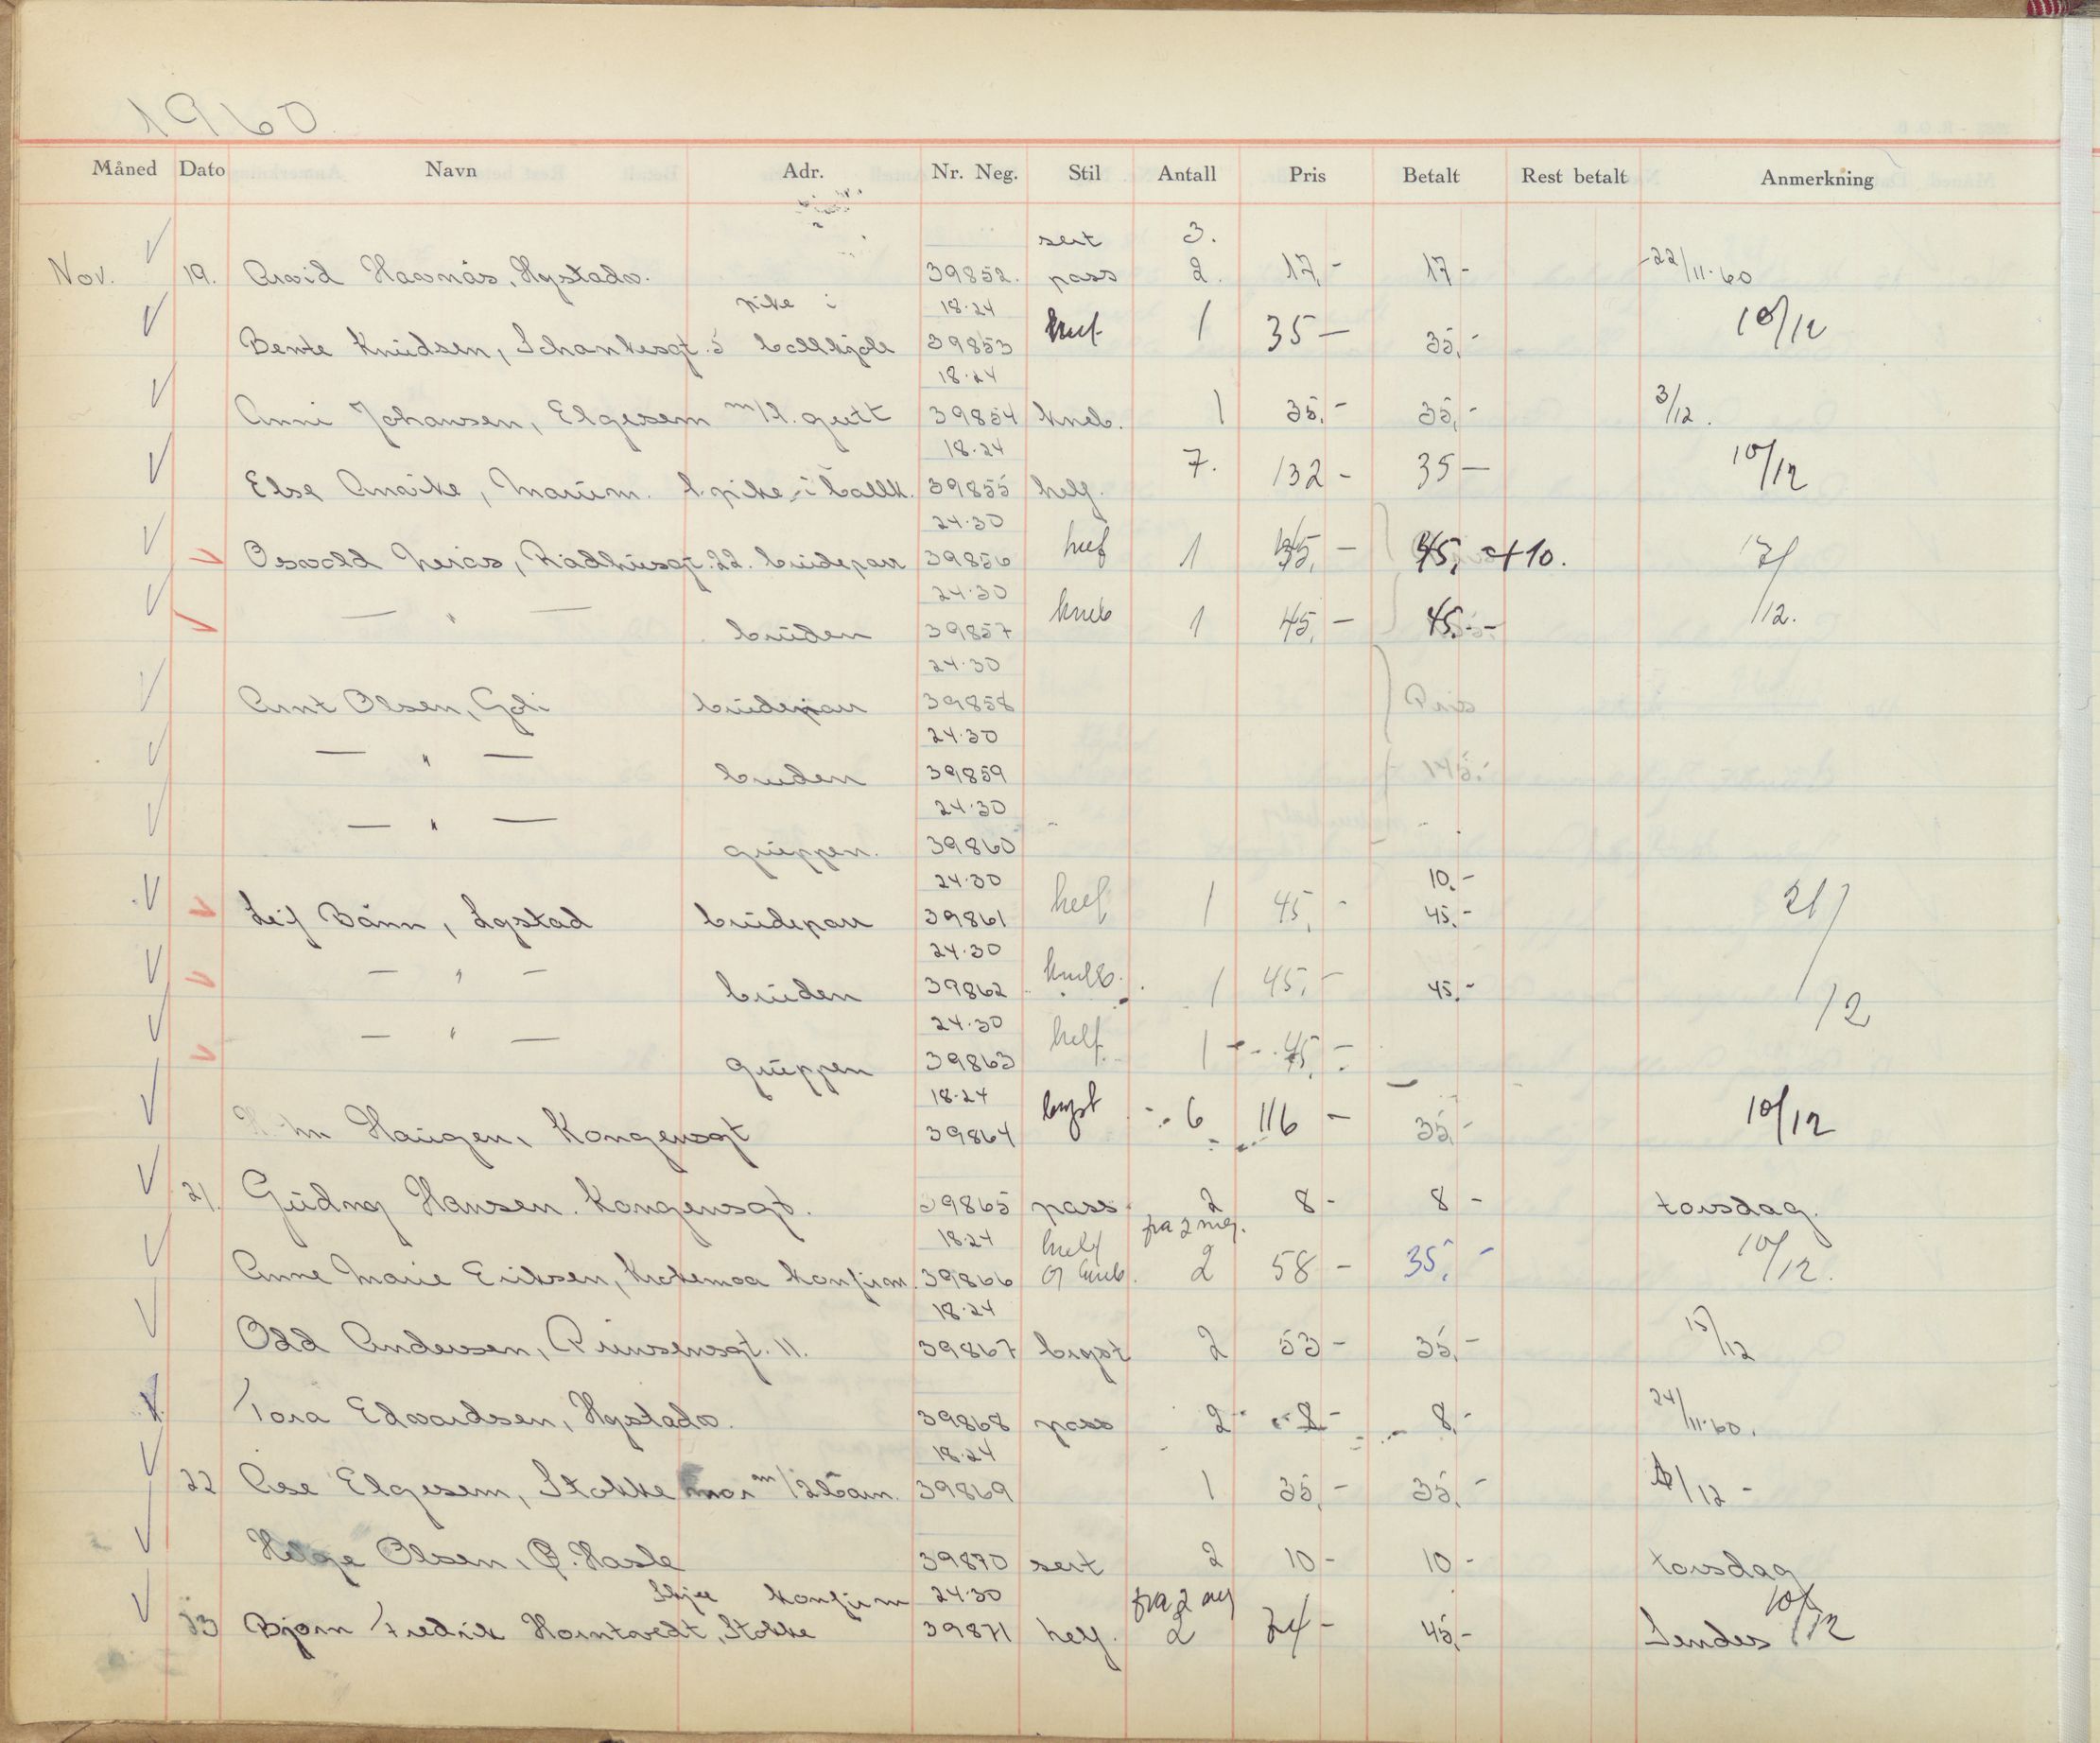 1960
Måned Dato Navn Adr. Nr. Neg. Stil Antall Pris Betalt Rest betalt Anmerkning
sert 3.
Nov. 19. Arvid Havnås, Hystadv. 39852. pass 2. 17,- 17- 22/11-60
pike i 18.24
Bente Knudsen, Schankesgt. 5 ballkjole 39853 1 35- 35,- 10/12
18.24
Anni Johansen, Elgesem m/l. gutt 39854 kneb. 1 35,- 35,- 3/12.
18.24
Else Anvike, Marum. l. pike i ballk. 39855 helf. 7. 132- 35- 10/12
24.30
Osvold Nerås, Rådhusgt. 22. brudepar 39856 helf 1 45,- +10.
24.30
— " — bruden 39857 kneb 1 45,- 45,- /12.
24.30
Arnt Olsen, Goli brudepar 39858 Pris
24.30
— " — bruden 39859 145,-
24.30
— " — gruppen. 39860
24.30 10.-
Leif Bånn, Lystad brudepar 39861 helf 1 45,- 45,- 21/12
24.30
— " — bruden 39862 1 45,- 45,-
24.30
— " — gruppen 39863 helf. 1 45,-
18.24
Haugen, Kongensgt 39864 bryst 6 116- 35,- 10/12
21. Gudny Hansen. Kongensgt. 39865 pass. 2 8- 8- torsdag.
18.24 helf fra 2 neg.
Anne Marie Eriksen, Krokemoa konfirm. 39866 og kneb. 2 58- 35,- 10/12.
18.24
Odd Andersen, Prinsensgt. 11. 39867 bryst 2 53- 35,- 15/12
Tora Edvardsen, Hystadv. 39868 pass 2 8- 8,- 24/11-60.
18.24
22 Åse Elgesem, Stokke mor m/2 barn. 39869 1 35,- 35,- /12-
Helge Olsen, Ø. Hasle 39870 sert 2 10- 10- torsdag
Skjee konfirm 24.30 fra 2 neg
23 Bjørn Fredrik Horntvedt, Stokke 39871 helf. 2 74- 45,- Sendes 10/12